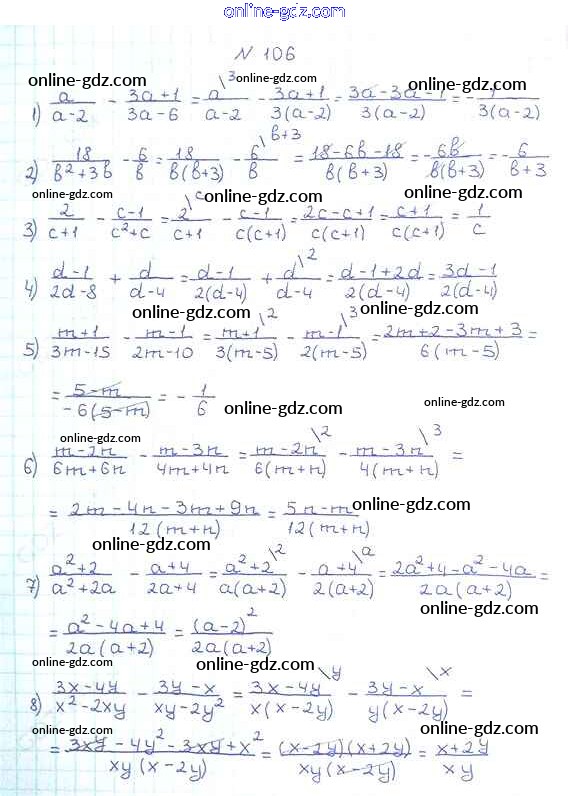 online-gdz.com
N 106
online-gdz.com online-gdz.com online-gdz.com
1) a/(a-2) - (3a+1)/(3a-6) = a\3/(a-2) - (3a+1)/(3(a-2)) = (3a-3a-1)/(3(a-2)) = -1/(3(a-2))
online-gdz.com
2) 18/(b²+3b) - 6/b = 18/(b(b+3)) - 6\b+3/b = (18-6b-18)/(b(b+3)) = -6b/(b(b+3)) = -6/(b+3)
online-gdz.com online-gdz.com
3) 2/(c+1) - (c-1)/(c²+c) = 2\c/(c+1) - (c-1)/(c(c+1)) = (2c-c+1)/(c(c+1)) = (c+1)/(c(c+1)) = 1/c
online-gdz.com online-gdz.com
4) (d-1)/(2d-8) + d/(d-4) = (d-1)/(2(d-4)) + d\2/(d-4) = (d-1+2d)/(2(d-4)) = (3d-1)/(2(d-4))
online-gdz.com online-gdz.com
5) (m+1)/(3m-15) - (m-1)/(2m-10) = (m+1)\2/(3(m-5)) - (m-1)\3/(2(m-5)) = (2m+2-3m+3)/(6(m-5)) =
= (5-m)/(-6(5-m)) = -1/6
online-gdz.com online-gdz.com
online-gdz.com
6) (m-2n)/(6m+6n) - (m-3n)/(4m+4n) = (m-2n)\2/(6(m+n)) - (m-3n)\3/(4(m+n)) =
online-gdz.com
= (2m-4n-3m+9n)/(12(m+n)) = (5n-m)/(12(m+n))
online-gdz.com online-gdz.com
7) (a²+2)/(a²+2a) - (a+4)/(2a+4) = (a²+2)\2/(a(a+2)) - (a+4)\a/(2(a+2)) = (2a²+4-a²-4a)/(2a(a+2)) =
online-gdz.com
= (a²-4a+4)/(2a(a+2)) = (a-2)²/(2a(a+2))
online-gdz.com online-gdz.com
8) (3x-4y)/(x²-2xy) - (3y-x)/(xy-2y²) = (3x-4y)\y/(x(x-2y)) - (3y-x)\x/(y(x-2y)) =
online-gdz.com online-gdz.com
= (3xy-4y²-3xy+x²)/(xy(x-2y)) = (x-2y)(x+2y)/(xy(x-2y)) = (x+2y)/(xy)
online-gdz.com online-gdz.com